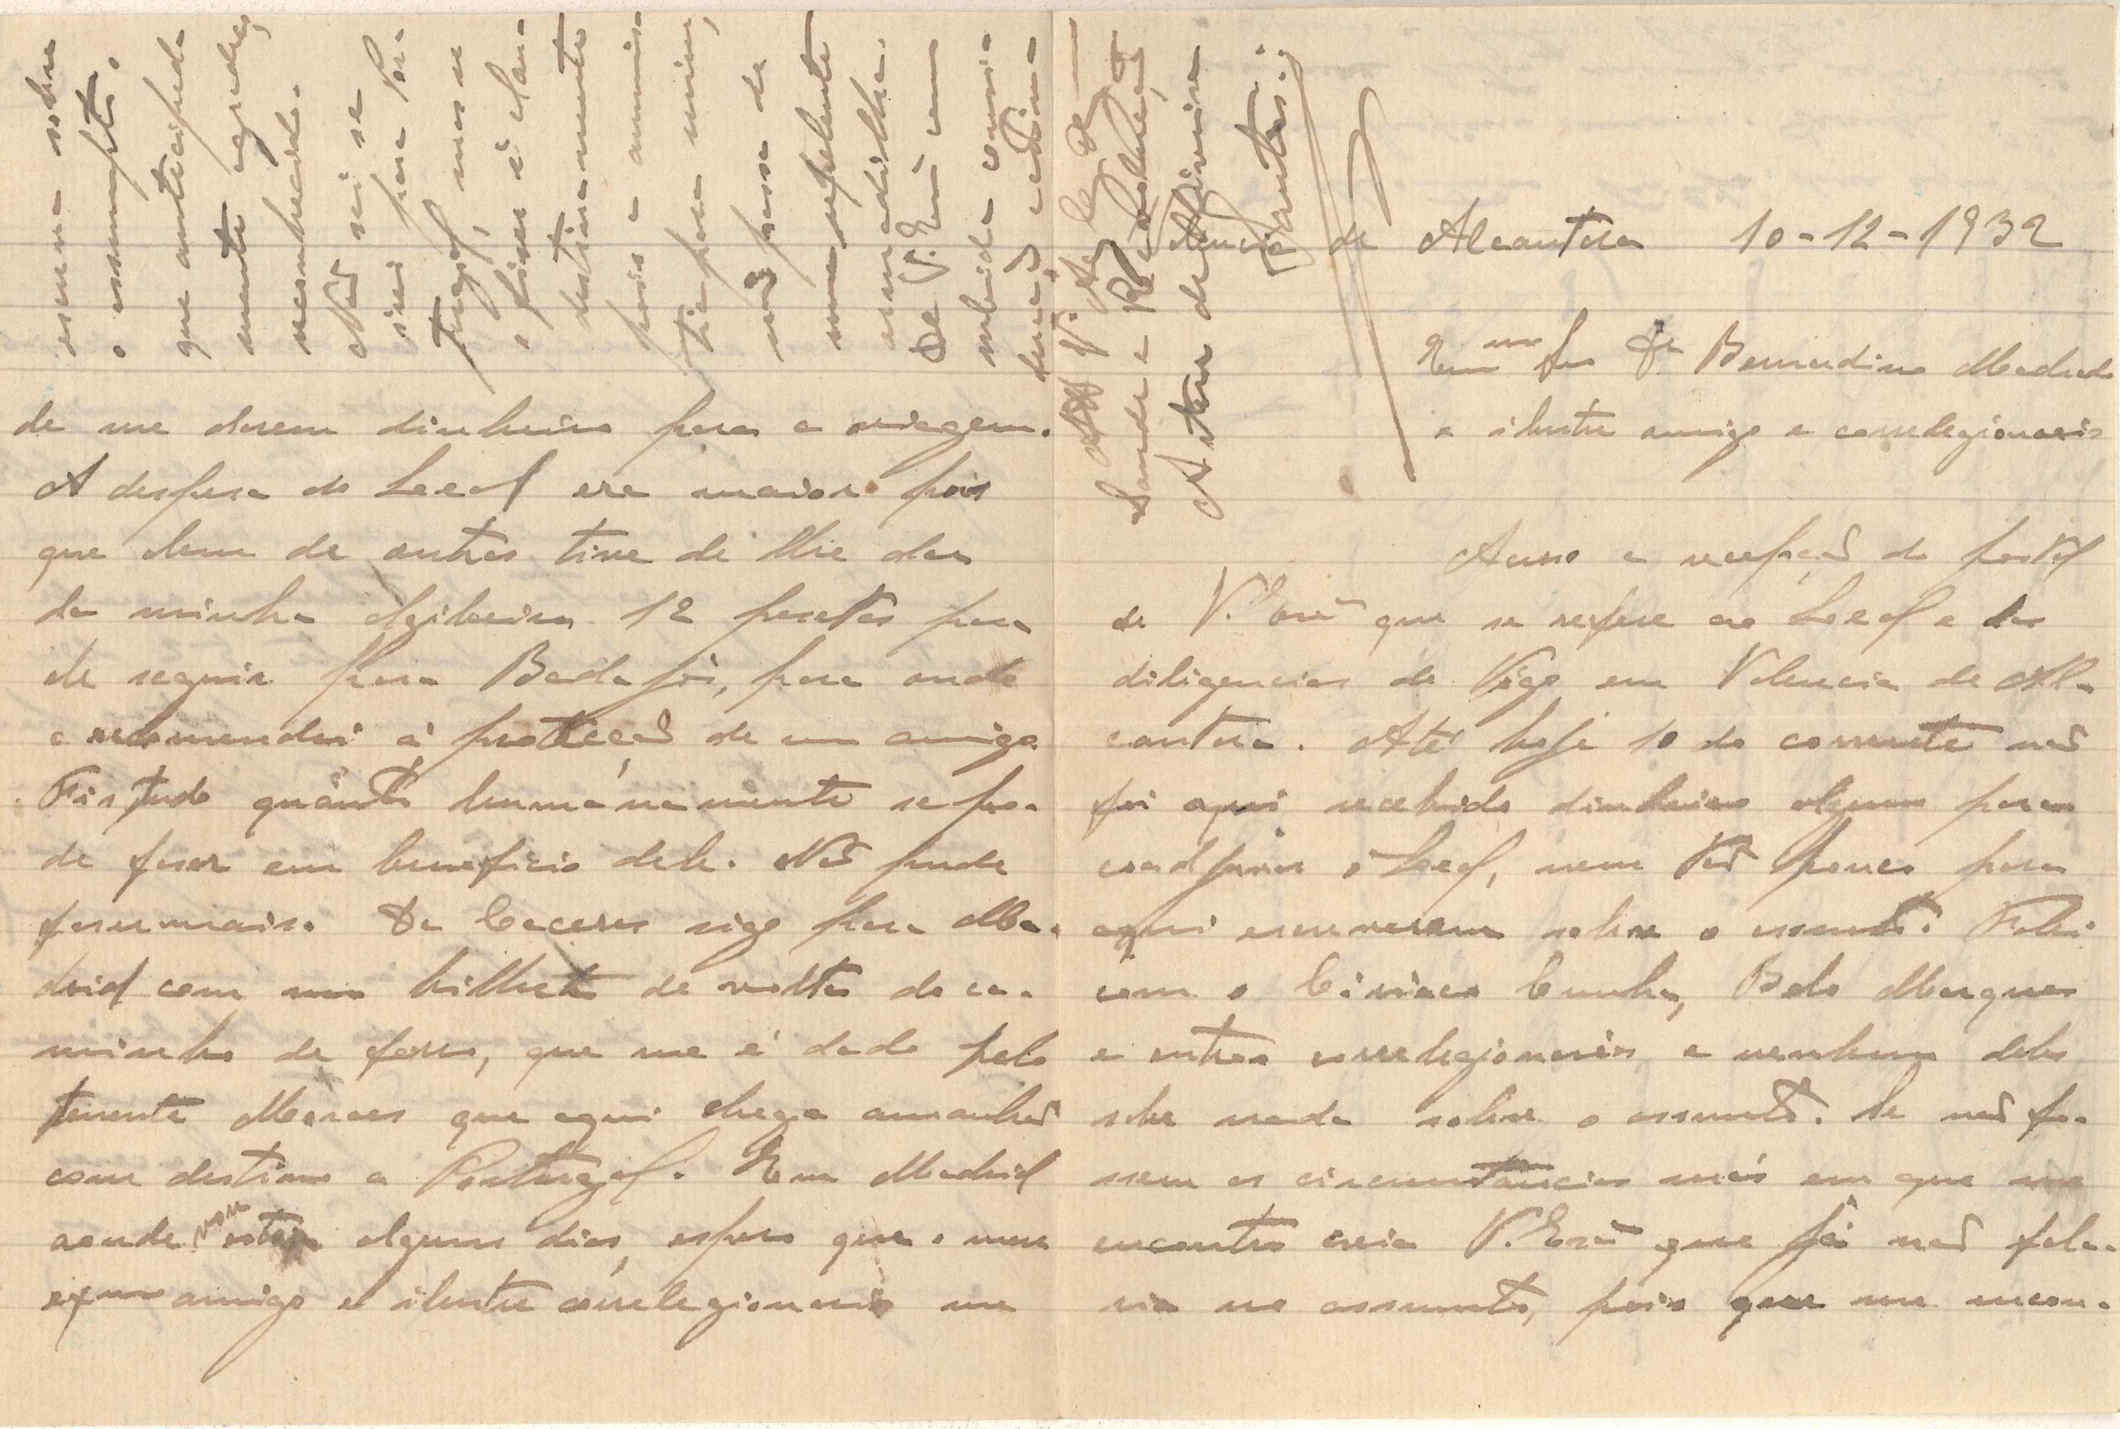 Valencia de Alcantara 10-12-1932
Exmo Snr Dr Bernardino Machado
e ilustre amigo e correlegionario
Acuso a recepção do postal
de V. Exª que se refere ao Leal e das
diligencias de Vigo em Valencia de Al-
cantara. Até hoje 10 do corrente não
foi aqui recebido dinheiro algum para
coadjuvar o Leal, nem tão pouco para
aqui escreveram sobre o assunto. Falei
com o Ciriaco Cunha, Belo Marques
e outros correlegionarios e nenhum deles
sabe nada sobre o assunto. Se não fo-
ssem as circumstancias más em que me
encontro creia V. Exª que já não fala-
ria no assunto, pois que me encon-
de me darem dinheiro para a viagem.
A despesa do Leal era maior pois
que alem de outras tive de lhe dar
da minha algibeira 12 pesetas para
ele seguir para Badajós, para onde
o recomendei á protecção de um amigo.
Fis tudo quanto humanamente se po-
de faser em beneficio dele. Não pude
faser mais. De Caceres sigo para Ma-
drid com um bilhete de volta do ca-
minho de ferro, que me é dado pelo
tenente Moraes que aqui chega amanhã
com destino a Portugal. Em Madrid
aonde vou estar alguns dias, espero que o meu
exmo amigo e ilustre correlegionario me
escreva sobre
o assumpto.
que antecipada-
mente agradeço
reconhecido.
Não sei se
irei para Por-
tugal, mas se
o fiser é clan-
destinamente
pois a amnis-
tia para mim,
não passa de
uma repelente
armadilha.
De V. Exª com
subida consi-
deração
Saude e Republica
Artur de Oliveira
Santos